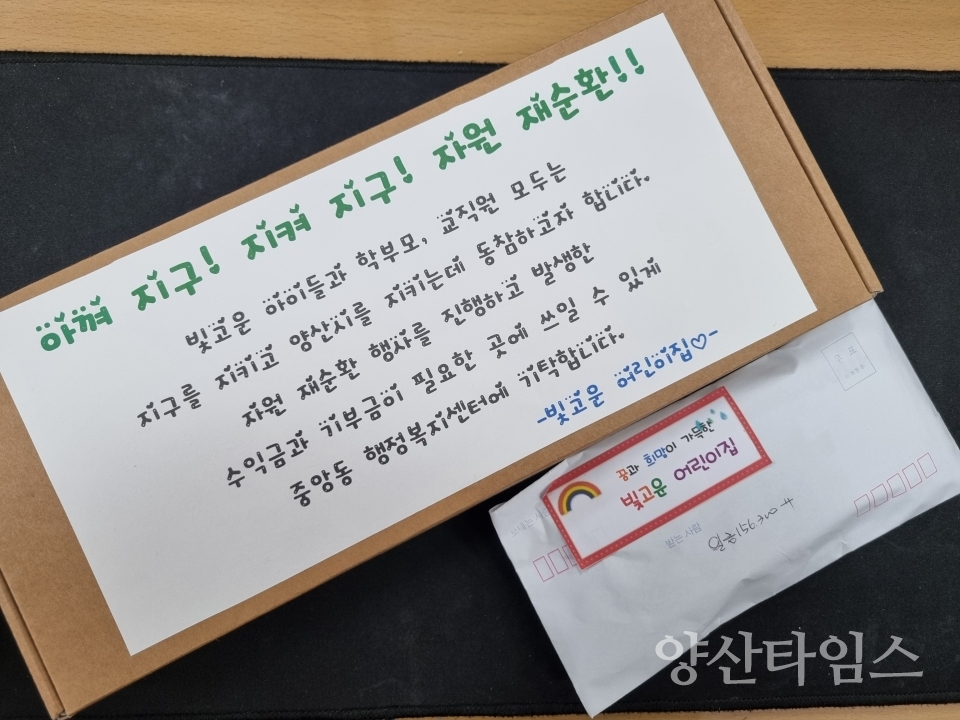 아껴 지구! 지켜 지구! 자원 재순환!!
빛고운 아이들과 학부모, 교직원 모두는
지구를 지키고 양산시를 지키는데 동참하고자 합니다.
자원 재순환 행사를 진행하고 발생한
수익금과 기부금이 필요한 곳에 쓰일 수 있게
중앙동 행정복지센터에 기탁합니다.
-빛고운 어린이집♡-
꿈과 희망이 가득한
빛고운 어린이집
보내는 사람
받는 사람
우표
양산타임스